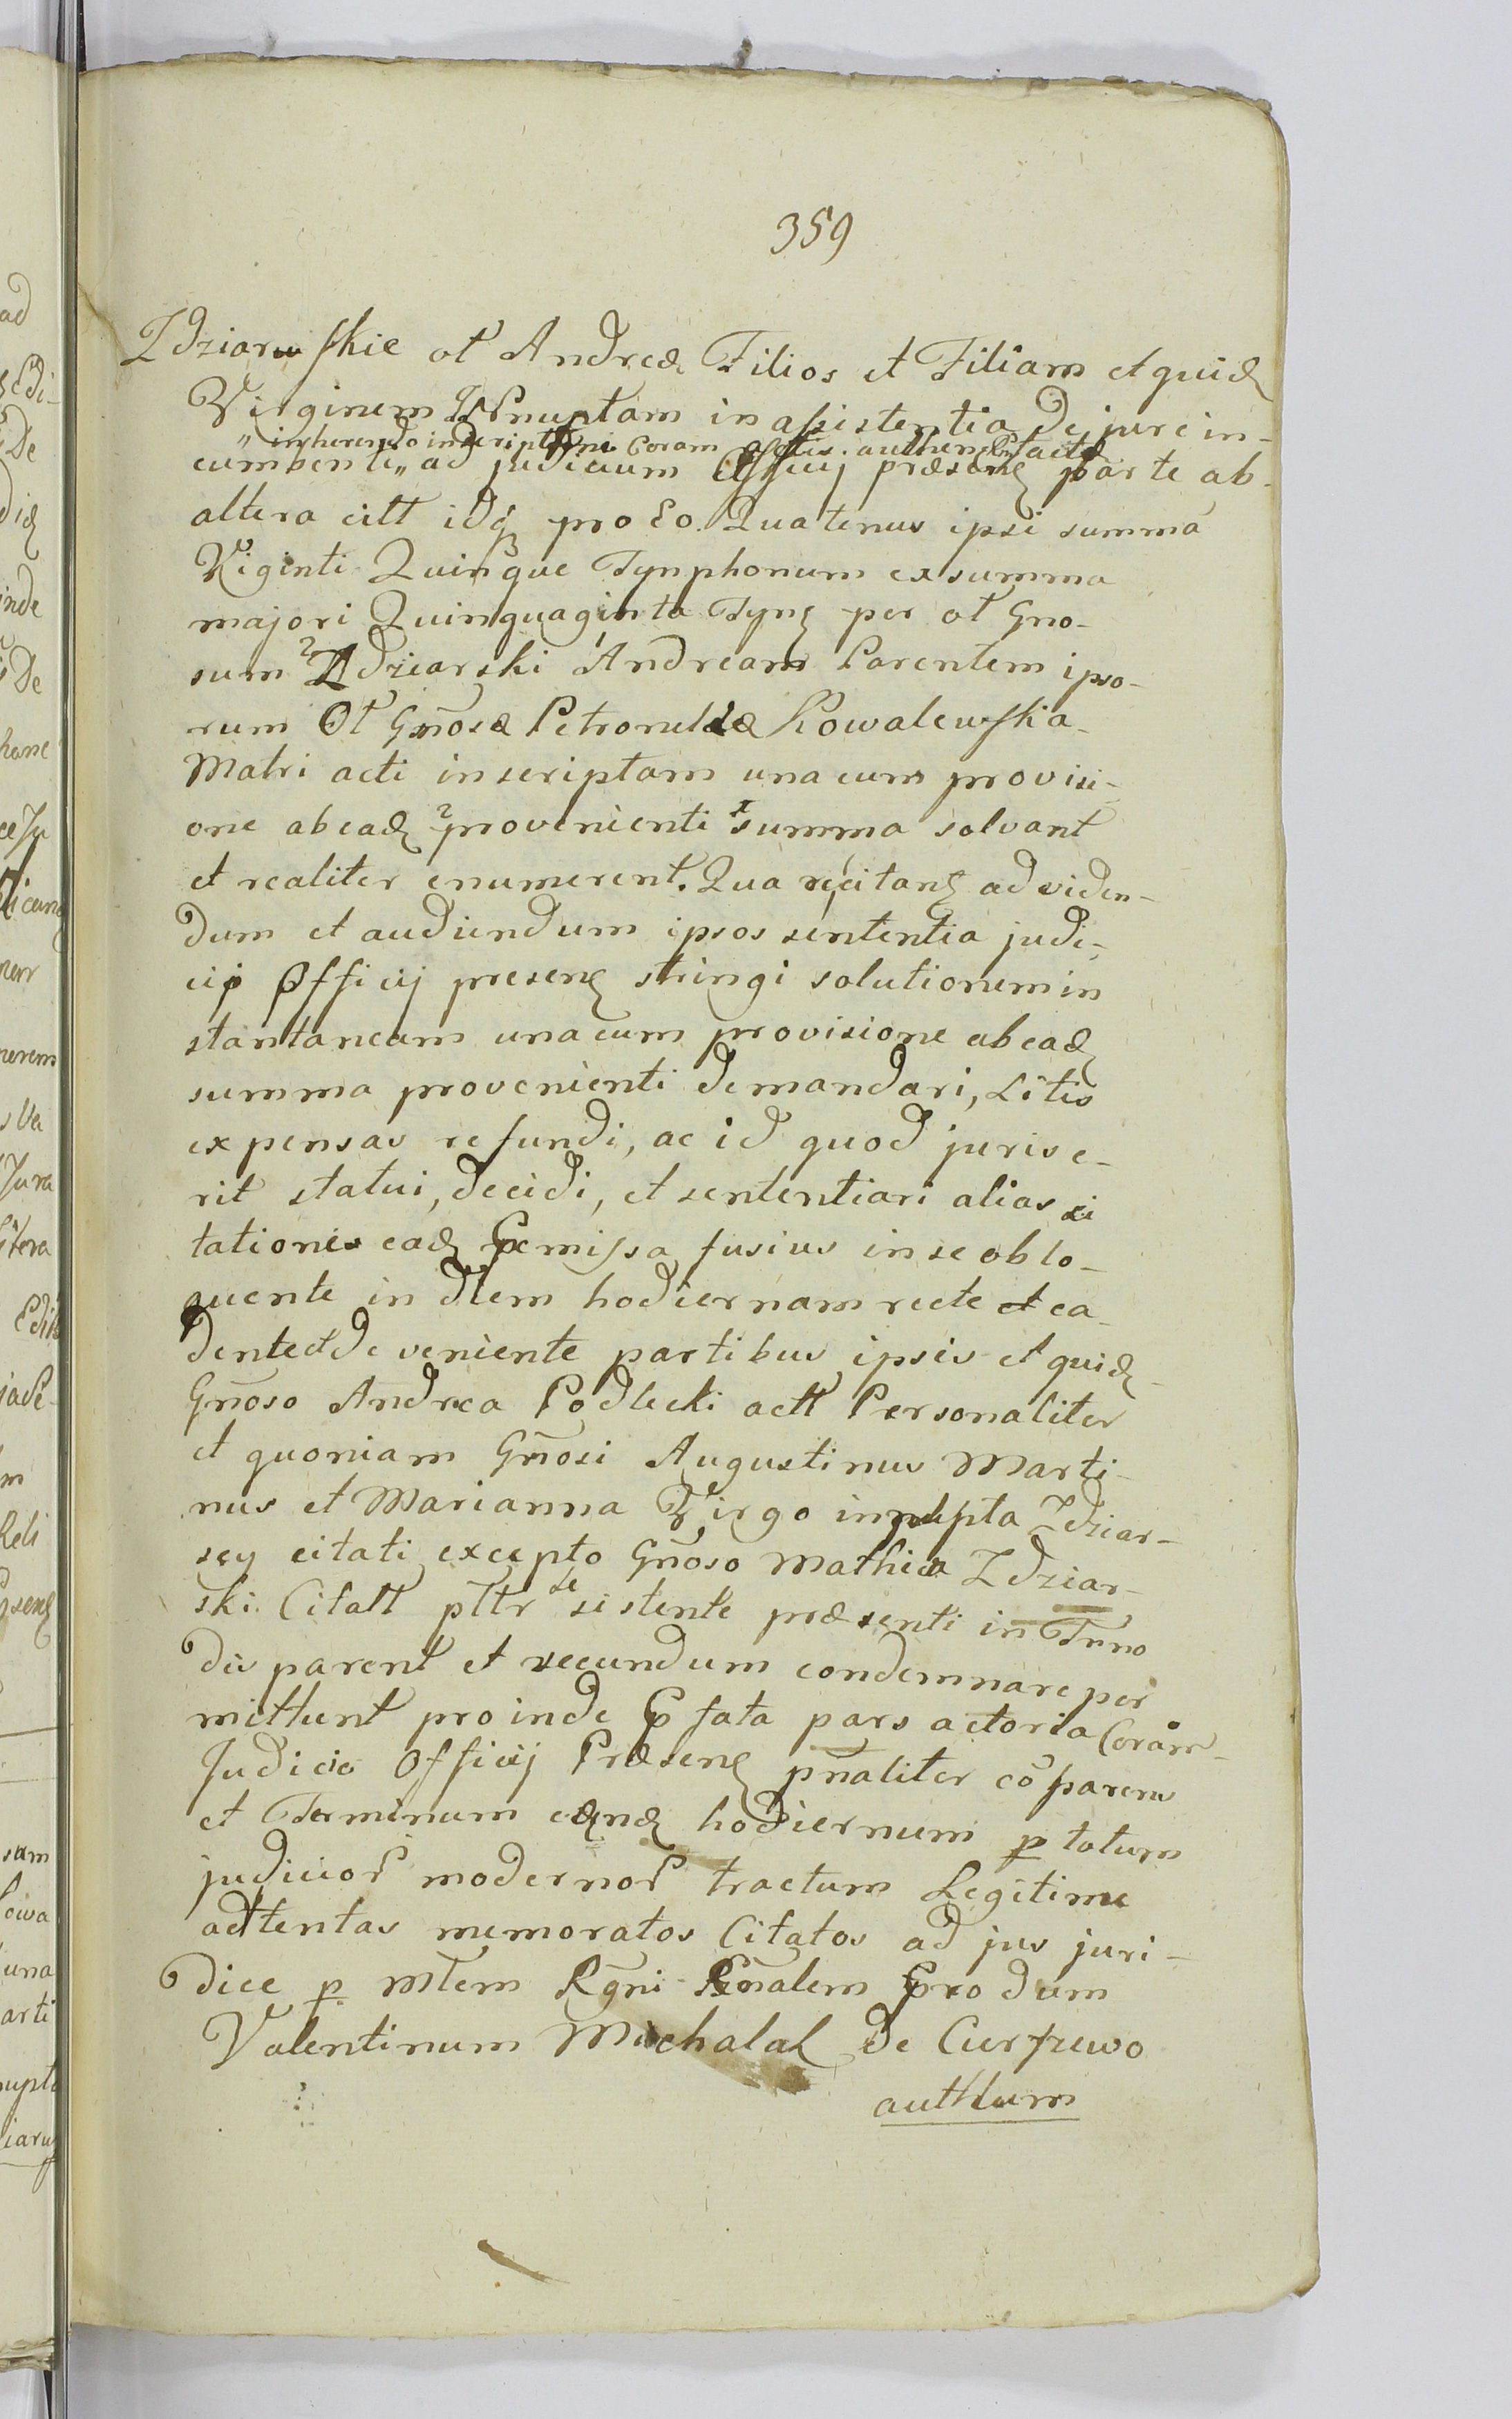 359
Zdziarwskie ol Andreæ Filios et Filiam et quid
Virginem Innuptam in assistentia de jure in-
„ inherendo inscriptioni coram actis authen
cumbenti „ ad judicium Officij præsen parte ab-
altera citt idq pro Eo. Quatenus ipsi summa
Viginti Quinque Tynphonum ex summa
majori Quinquaginta Tynf per ol Gno-
sum Zdziarski Andream Parentem ipso-
rum Ol Gnosæ Petronellæ Kowalewska
Matri acti inscriptam una cum provisi-
one ab ead provenienti summa solvant
et realiter enumerent. Qua recitan ad viden-
dum et audiendum ipsos sententia judi-
cij Officij presen stringi solutionem in
stantaneam una cum provisione ab ead
summa provenienti demandari, Litis
expensas refundi, ac id quod juris e-
rit statui, decidi, et sententiari alias ci
tationis ead Præmissa fusius in se oblo-
quente in diem hodiernam recte et ca-
dente et de veniente partibus ipsis et quid
Gnoso Andrea Podlecki actt Personaliter
et quoniam Gnosi Augustinus Marti-
nus et Marianna Virgo innupta Zdziar-
scy citati excepto Gnoso Mathia Zdziar-
ski Citatt pttr se sistente præsenti in Tnno
dis parent et secundum condemnare per
mittunt pro inde Præfata pars actoria Coram
Judicio Officij Præsen pnaliter coparens
et Terminum hodiernum p totum
judicior modernor tractum Legitime
adtentas memoratos Citatos ad jus juri-
dice p Mtem Rgni Gnalem Produm
Valentinum Michalak de Curzewo
authtum
ad
Edi-
De
inde
De
hanc
nerem
Jura
Edit
m
Reli
una
arti
nupta